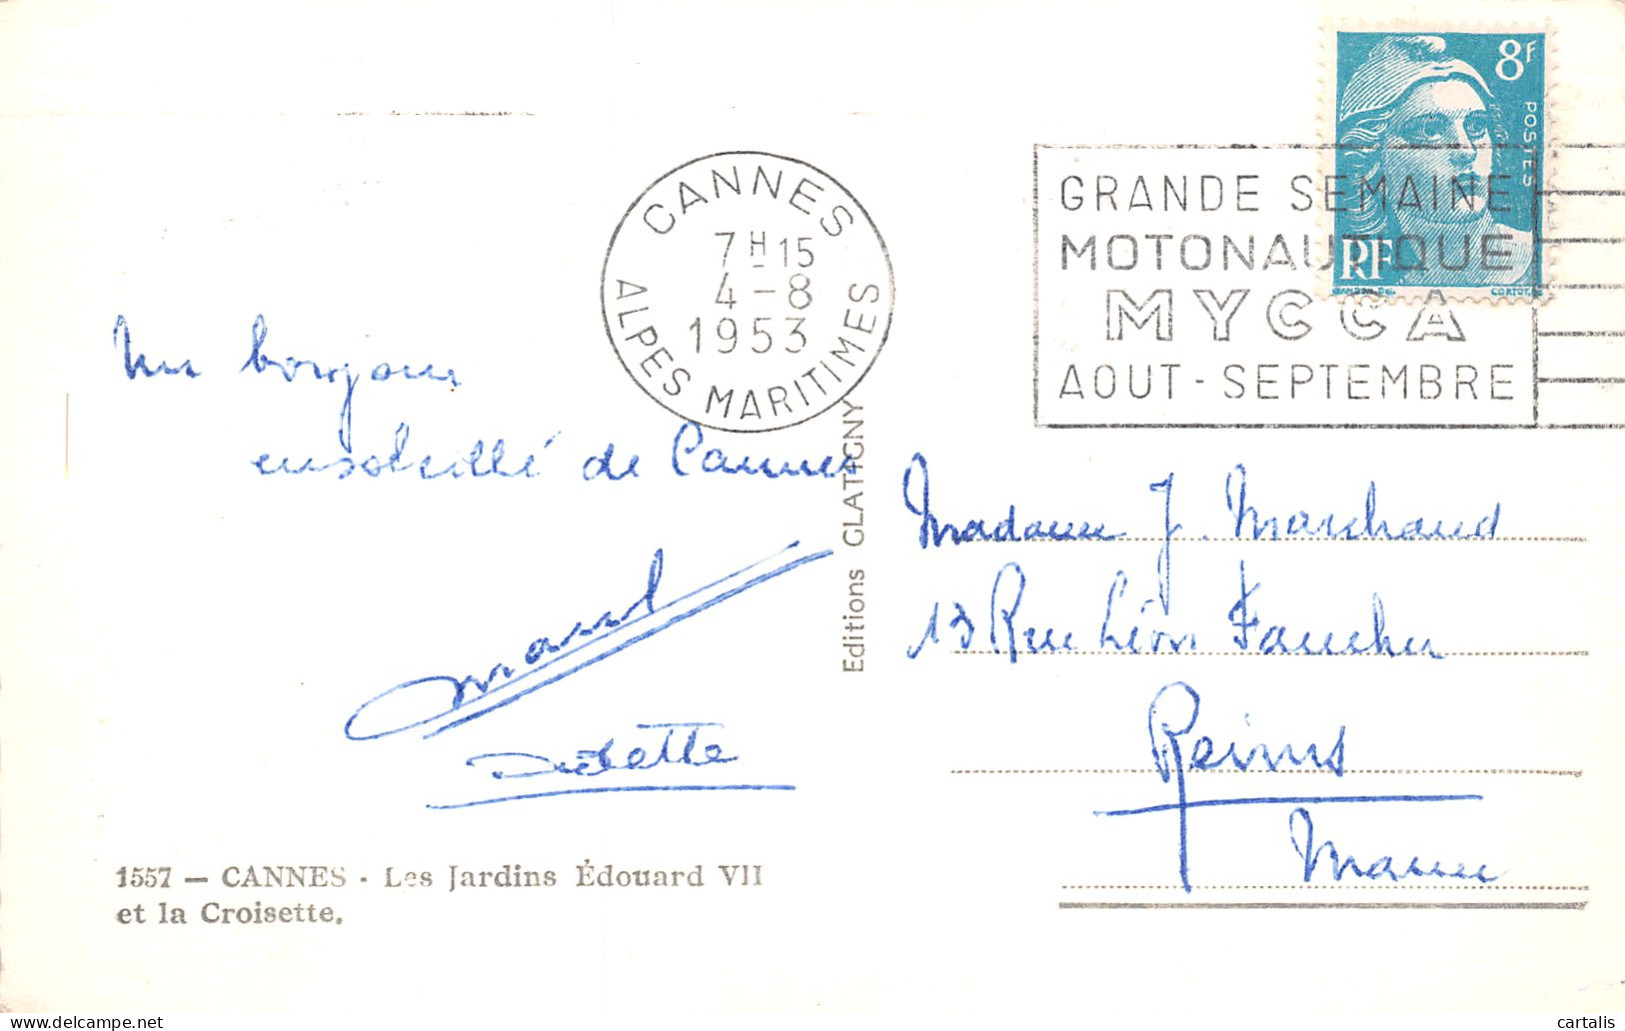 8F
POSTES
RF
CORTOT
CANNES
7H15
4-8
1953
ALPES MARITIMES
GRANDE SEMAINE
MOTONAUTIQUE
MYCCA
AOUT - SEPTEMBRE
Un bonjour
ensoleillé de Cannes
Editions GLATIGNY
Madame J. Marchand
13 Rue Léon Faucher
Reims
Marne
1557 — CANNES - Les Jardins Édouard VII
et la Croisette.
cartalis | www.delcampe.net